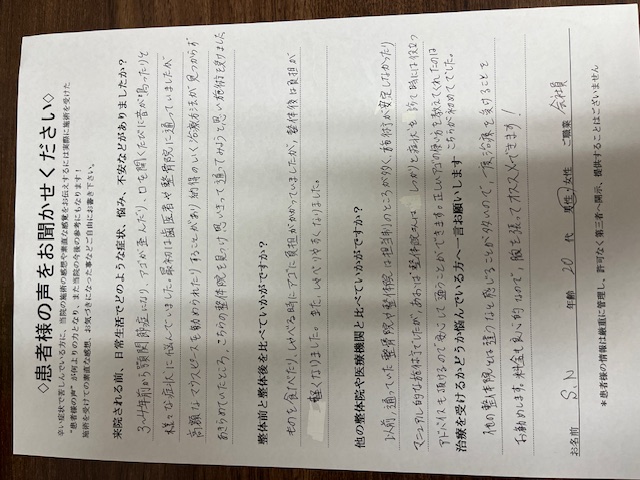 ◇患者様の声をお聞かせください◇
辛い症状で苦しんでいる方に、当院の施術の感想や素直な感覚をお伝えするには実際に施術を受けた
“患者様の声”が何よりの力となり、また当院の今後の参考にもなります!
施術を受けての素直な感想、お気づきになった事などご自由にお書き下さい。
来院される前、日常生活でどのような症状、悩み、不安などがありましたか?
3~4年前から顎関節症になり、アゴが歪んだり、口を開くたびに音が鳴ったりと
様々な症状に悩んでいました。最初は歯医者や整骨院に通っていましたが
高額なマウスピースを勧められたりすることがあり納得のいく治療方法が見つからず
あきらめていたところ、こちらの整体院を見つけ思いきって通ってみようと思い施術を決めました
整体前と整体後を比べていかがですか?
ものを食べたり、しゃべる時にアゴに負担がかかっていましたが、整体後は負担が
軽くなりました。また、しゃべりやすくなりました。
他の整体院や医療機関と比べていかがですか?
以前、通っていた整骨院や整体院は担当制のところが多く、施術が安定しなかったり
マニュアル的な施術でしたが、あおば整体院さんは しっかりと症状を 診て 時には役立つ
アドバイスも頂けるので安心して通うことができます。正しいアゴの使い方を教えてくれたのは
こちらが初めてでした。
治療を受けるかどうか悩んでいる方へ一言お願いします
他の整体院とは違うなと感じることが多いので、一度治療を受けることを
お勧めします。料金も良心的なので、胸を張ってオススメできます!
お名前 S.N 年齢 20 代 男性・女性 ご職業 会社員
*患者様の情報は厳重に管理し、許可なく第三者へ開示、提供することはございません